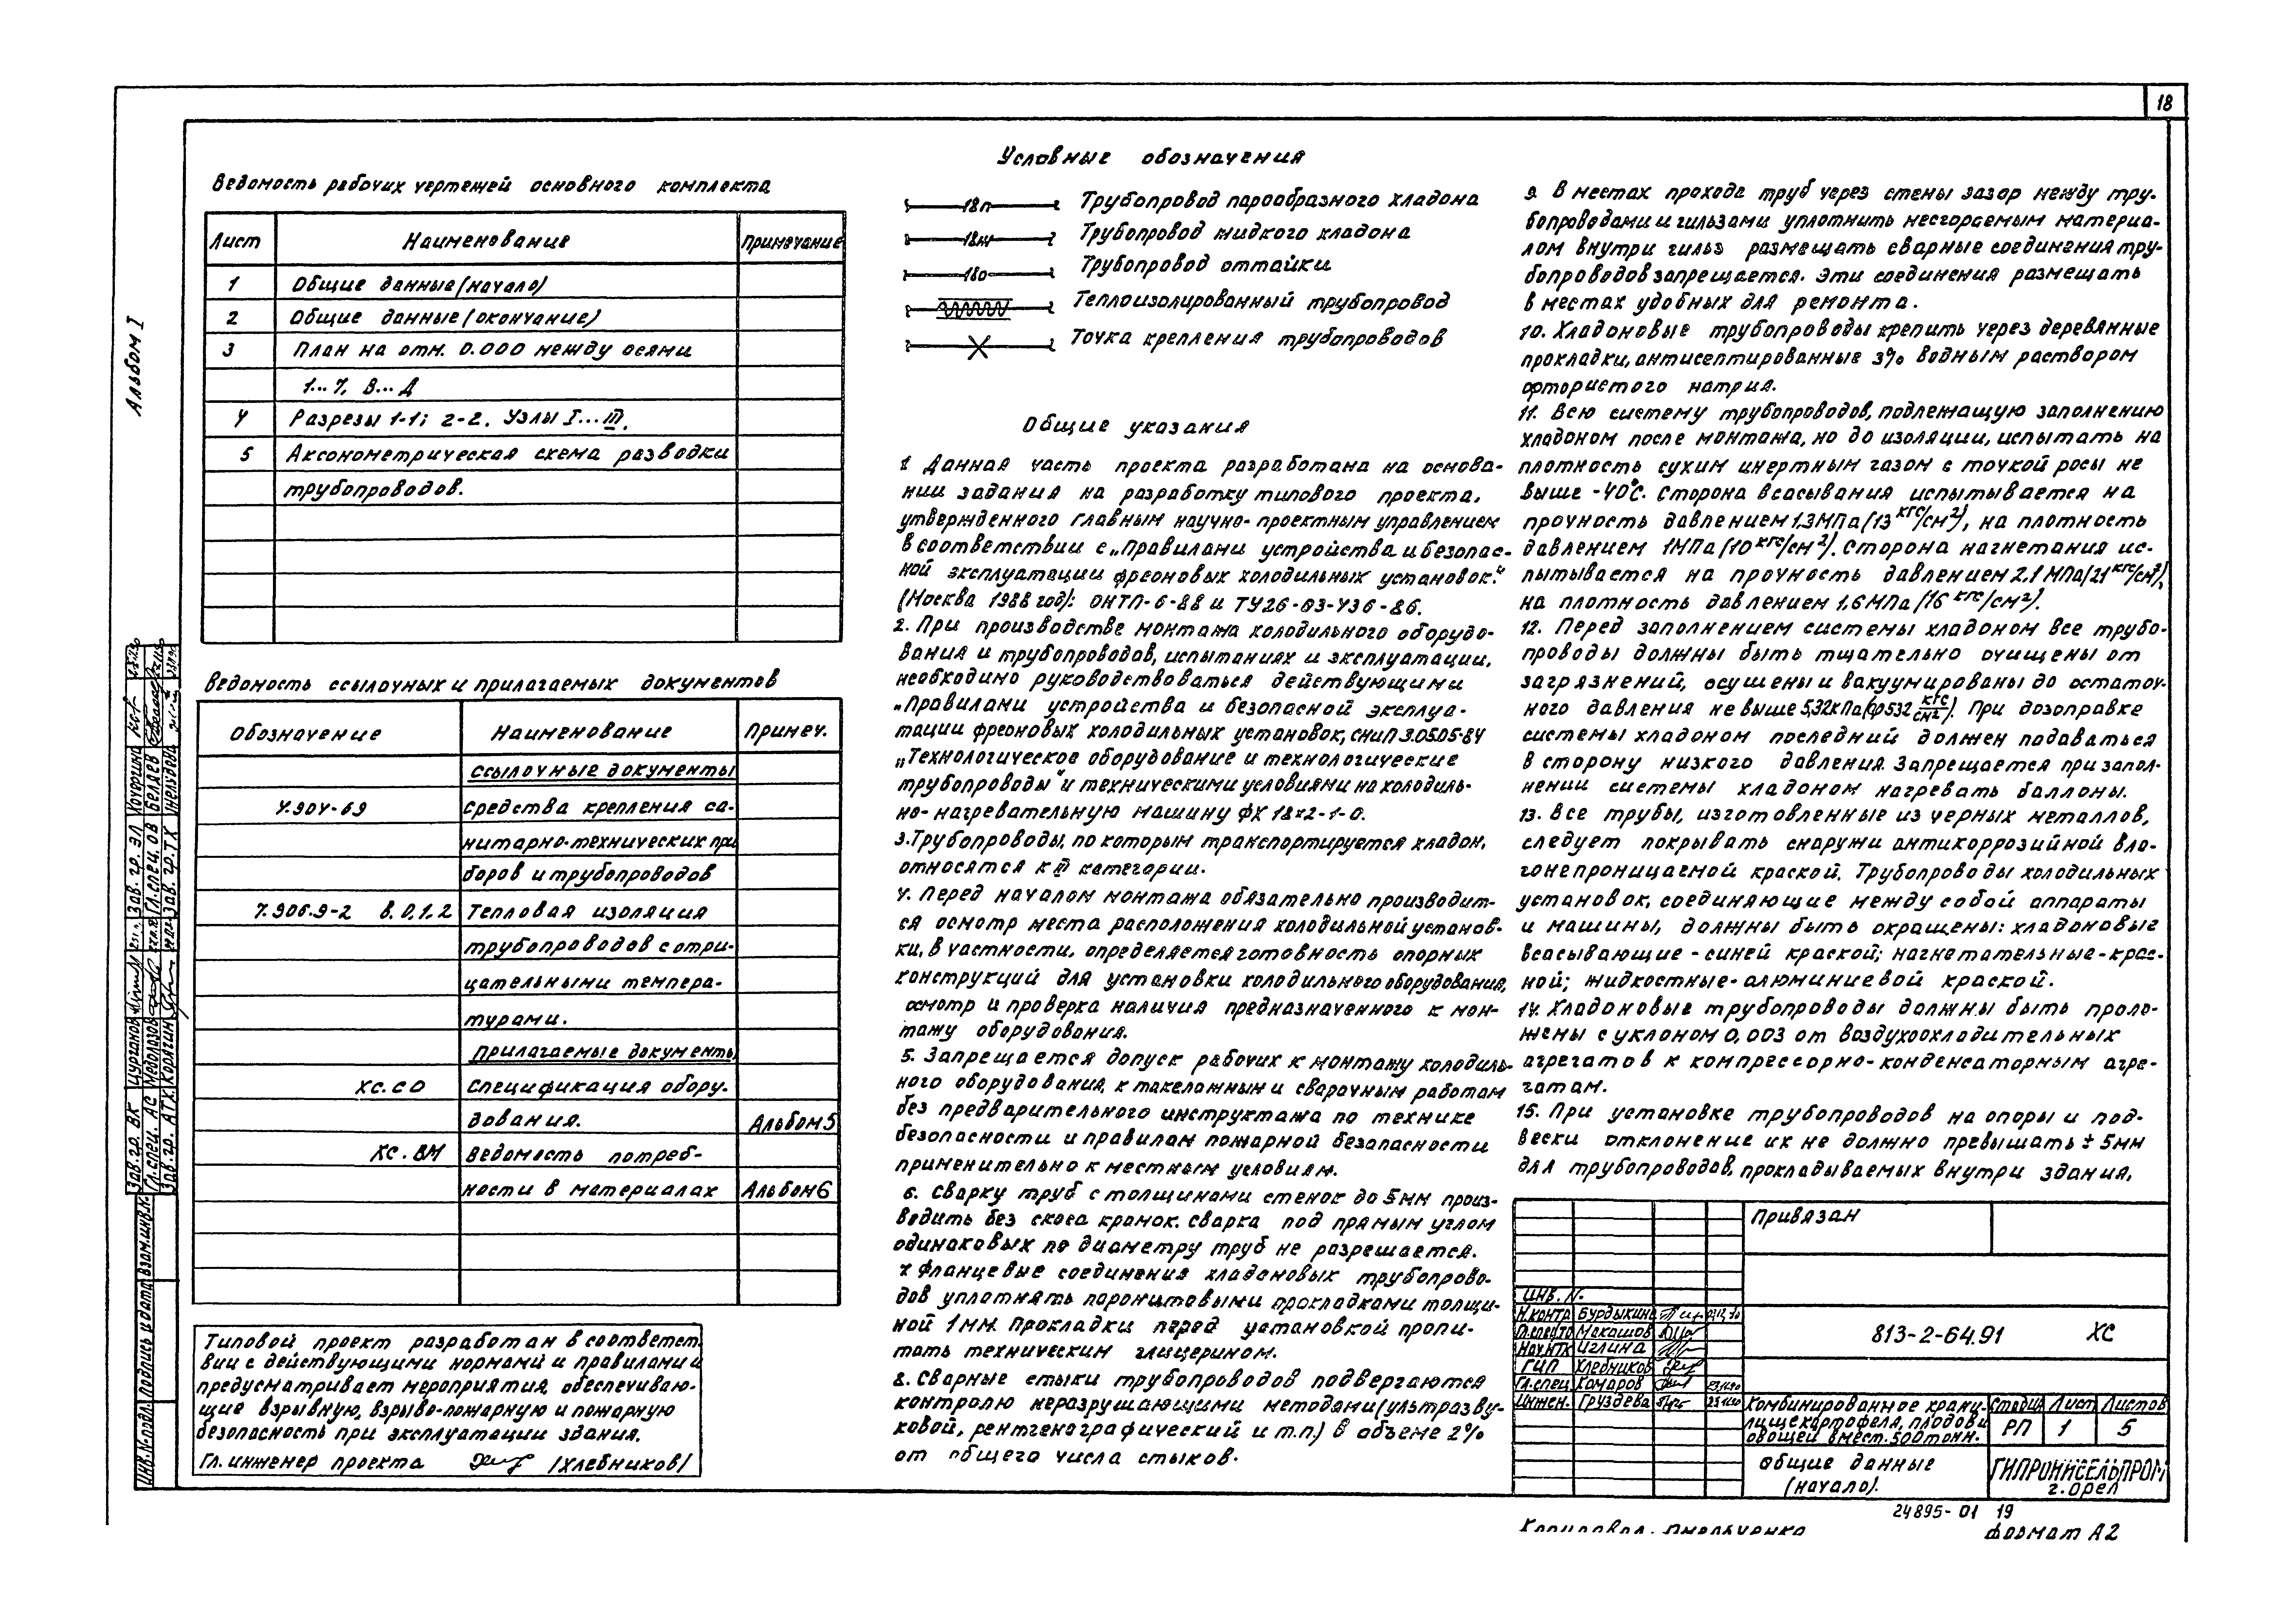 18
Альбом I
Ведомость рабочих чертежей основного комплекта
Лист Наименование Примечание
1 Общие данные (начало)
2 Общие данные (окончание)
3 План на отм. 0.000 между осями
1...7, В...Д
4 Разрезы 1-1; 2-2. Узлы I...III.
5 Аксонометрическая схема разводки
трубопроводов.
Ведомость ссылочных и прилагаемых документов
Обозначение Наименование Примеч.
Ссылочные документы
4.904-69 Средства крепления са-
нитарно-технических при
боров и трубопроводов
7.906.9-2 в. 0,1,2 Тепловая изоляция
трубопроводов с отри-
цательными темпера-
турами.
Прилагаемые документы
ХС.СО Спецификация обору-
дования. Альбом 5
ХС.ВМ Ведомость потреб-
ности в материалах Альбом 6
Типовой проект разработан в соответст.
вии с действующими нормами и правилами и
предусматривает мероприятия, обеспечиваю-
щие взрывную, взрыво-пожарную и пожарную
безопасность при эксплуатации здания.
Гл. инженер проекта /Хлебников/
Условные обозначения
18п Трубопровод парообразного хладона
18ж Трубопровод жидкого хладона
18о Трубопровод оттайки
Теплоизолированный трубопровод
Точка крепления трубопроводов
Общие указания
1 Данная часть проекта разработана на основа-
нии задания на разработку типового проекта,
утвержденного главным научно-проектным управлением
в соответствии с „Правилами устройства и безопас-
ной эксплуатации фреоновых холодильных установок."
(Москва 1988 год): ОНТП-6-88 и ТУ26-03-436-86.
2. При производстве монтажа холодильного оборудо-
вания и трубопроводов, испытаниях и эксплуатации,
необходимо руководствоваться действующими
„Правилами устройства и безопасной эксплуа-
тации фреоновых холодильных установок, СНиП 3.05.05-84
„Технологическое оборудование и технологические
трубопроводы" и техническими условиями на холодиль-
но-нагревательную машину ФХ 18х2-1-0.
3. Трубопроводы, по которым транспортируется хладон,
относятся к III категории.
4. Перед началом монтажа обязательно производит-
ся осмотр места расположения холодильной установ-
ки, в частности, определяется готовность опорных
конструкций для установки холодильного оборудования,
осмотр и проверка наличия предназначенного к мон-
тажу оборудования.
5. Запрещается допуск рабочих к монтажу холодиль-
ного оборудования, к такелажным и сварочным работам
без предварительного инструктажа по технике
безопасности и правилам пожарной безопасности
применительно к местным условиям.
6. Сварку труб с толщинами стенок до 5мм произ-
водить без скоса кромок. Сварка под прямым углом
одинаковых по диаметру труб не разрешается.
7. Фланцевые соединения хладоновых трубопрово-
дов уплотнять паронитовыми прокладками толщи-
ной 1мм. Прокладки перед установкой пропи-
тать техническим глицерином.
8. Сварные стыки трубопроводов подвергаются
контролю неразрушающими методами (ультразву-
ковой, рентгенографический и т.п.) в объеме 2%
от общего числа стыков.
9. В местах прохода труб через стены зазор между тру-
бопроводами и гильзами уплотнить несгораемым материа-
лом внутри гильз размещать сварные соединения тру-
бопроводов запрещается. Эти соединения размещать
в местах удобных для ремонта.
10. Хладоновые трубопроводы крепить через деревянные
прокладки, антисептированные 3% водным раствором
фтористого натрия.
11. Всю систему трубопроводов, подлежащую заполнению
хладоном после монтажа, но до изоляции, испытать на
плотность сухим инертным газом с точкой росы не
выше -40°С. Сторона всасывания испытывается на
прочность давлением 1,3МПа (13 кгс/см²), на плотность
давлением 1МПа (10 кгс/см²). Сторона нагнетания ис-
пытывается на прочность давлением 2,1 МПа (21 кгс/см²),
на плотность давлением 1,6МПа (16 кгс/см²).
12. Перед заполнением системы хладоном все трубо-
проводы должны быть тщательно очищены от
загрязнений, осушены и вакуумированы до остаточ-
ного давления не выше 5,32кПа (0,0532 кгс/см²). При дозаправке
системы хладоном последний должен подаваться
в сторону низкого давления. Запрещается при запол-
нении системы хладоном нагревать баллоны.
13. Все трубы, изготовленные из черных металлов,
следует покрывать снаружи антикоррозийной вла-
гонепроницаемой краской. Трубопроводы холодильных
установок, соединяющие между собой аппараты
и машины, должны быть окрашены: хладоновые
всасывающие - синей краской; нагнетательные - крас-
ной; жидкостные - алюминиевой краской.
14. Хладоновые трубопроводы должны быть проло-
жены с уклоном 0,003 от воздухоохладительных
агрегатов к компрессорно-конденсаторным агре-
гатам.
15. При установке трубопроводов на опоры и под-
вески отклонение их не должно превышать ± 5мм
для трубопроводов, прокладываемых внутри здания,
Привязан
Инв. N.
Н.контр Бурдыкина
Гл.спец ТО Макашов
Нач. НТК Иглина
ГИП Хлебников
Гл.спец Комаров
Инжен. Груздева
813-2-64.91 ХС
Комбинированное храни-
лище картофеля, плодов и
овощей вмест. 500 тонн.
Стадия Лист Листов
РП 1 5
Общие данные
(начало).
ГИПРОНИСЕЛЬПРОМ
г. Орел
24895-01 19
Формат А2
Зав. гр. ВК Цурганов
Гл. спец. АС
Зав. гр. АТХ Корягин
Зав. гр. ЭЛ
Гл. спец. ОВ Беляев
Зав. гр. ТХ
Инв. N подл. Подпись и дата Взам. инв. N